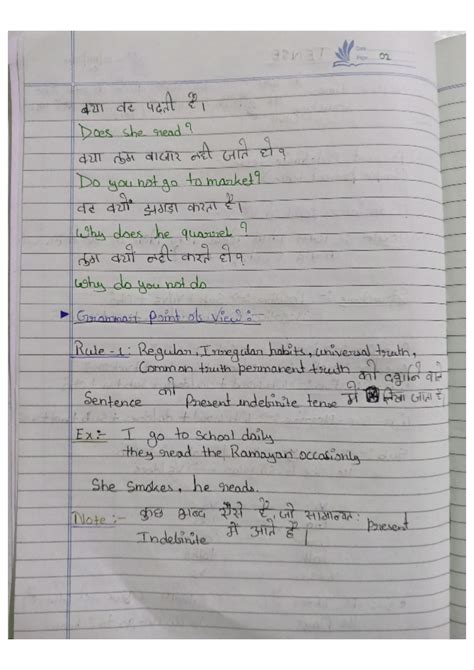 Date
Page 02
क्या वह पढती है।
Does she read?
क्या तुम बाजार नही जाते हो?
Do you not go to market?
वह क्यों झगडा करता है।
Why does he quarrel?
तुम क्यों नहीं करते हो?
Why do you not do
Grammar Point of View:-
Rule-1: Regular, Irregular habits, universal truth,
Common truth permanent truth को दर्शाने वाले
Sentence को Present indebinite tense में लिखा जाता है।
Ex:- I go to school daily
they read the Ramayan occasionly
She smokes, he reads.
Note:- कुछ शब्द ऐसे है, जो सामान्यत: Present
Indebinite में आते है।